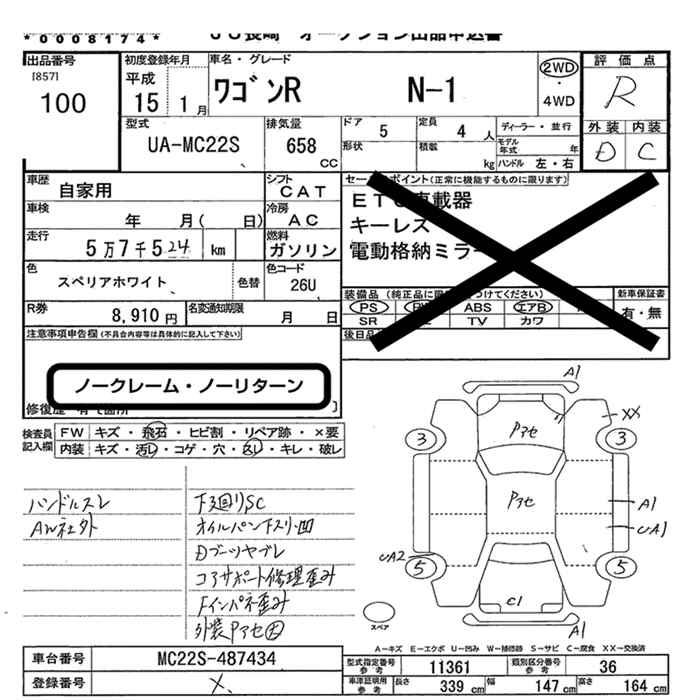 *0008174*
出品番号
[857]
100
初度登録年月
平成
15 1月
車名・グレード
ワゴンR N-1
2WD
・
4WD
評価点
R
外装 内装
D C
型式
UA-MC22S
排気量
658
CC
ドア
5
定員
4 人
形状
積載
kg
ディーラー・並行
モデル年式 年
ハンドル 左・右
車歴
自家用
シフト
CAT
車検
年 月( 日)
冷房
AC
走行
5万7千524 km
燃料
ガソリン
色
スペリアホワイト
色替
色コード
26U
R券
8,910円
名変通知期限
月 日
セールスポイント(正常に機能するものに限ります)
キーレス
電動格納ミラー
PS
ABS
エアB
SR
TV
カワ
新車保証書
有・無
注意事項申告欄(不具合内容等は具体的に記入して下さい)
ノークレーム・ノーリターン
検査員
記入欄
FW キズ・飛石・ヒビ割・リペア跡・×要
内装 キズ・汚レ・コゲ・穴・欠し・キレ・破レ
ハンドルスレ
AW社外
下廻りSC
オイルパン下スリ凹
Dブーツヤブレ
コアサポート修理歪み
Fインパネ歪み
外装Pアセ大
A1
XX
3
3
Pアセ
Pアセ
A1
UA1
UA2
5
5
C1
A1
スペア
A-キズ E-エクボ U-凹み W-補修跡 S-サビ C-腐食 XX-交換済
車台番号
MC22S-487434
登録番号
×
型式指定番号
参考
11361
類別区分番号
参考
36
車津証明用
参考
長さ 339 cm
幅 147 cm
高さ 164 cm